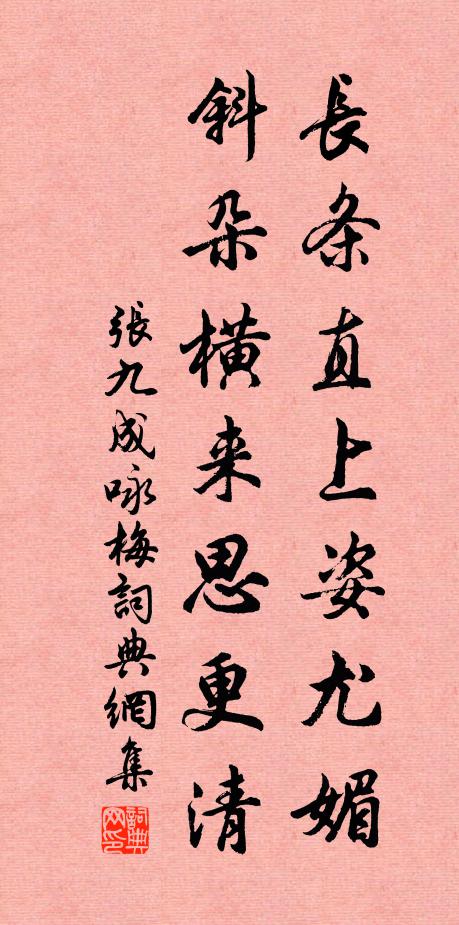 長条直上姿尤媚
斜朵橫来思更清
張九成咏梅詞典網集
詞典网印